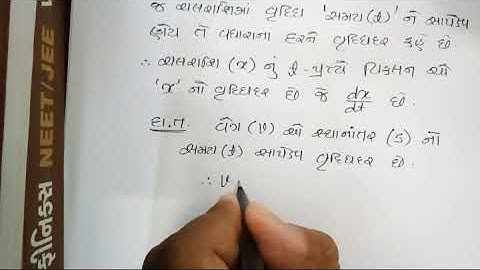 જે ચલરાશિમાં વૃદ્ધિ 'સમય (t)' ને સાપેક્ષ
હોય તે વધારાના દરને વૃદ્ધિદર કહે છે
∴ ચલરાશિ (x) નું t - પ્રત્યે વિકલન એ
'x' નો વૃદ્ધિદર છે જે dx/dt છે.
દા.ત. વેગ (v) એ સ્થાનાંતર (s) નો
સમય (t) સાપેક્ષ વૃદ્ધિદર છે.
∴ v
ફીનિક્સ NEET/JEE